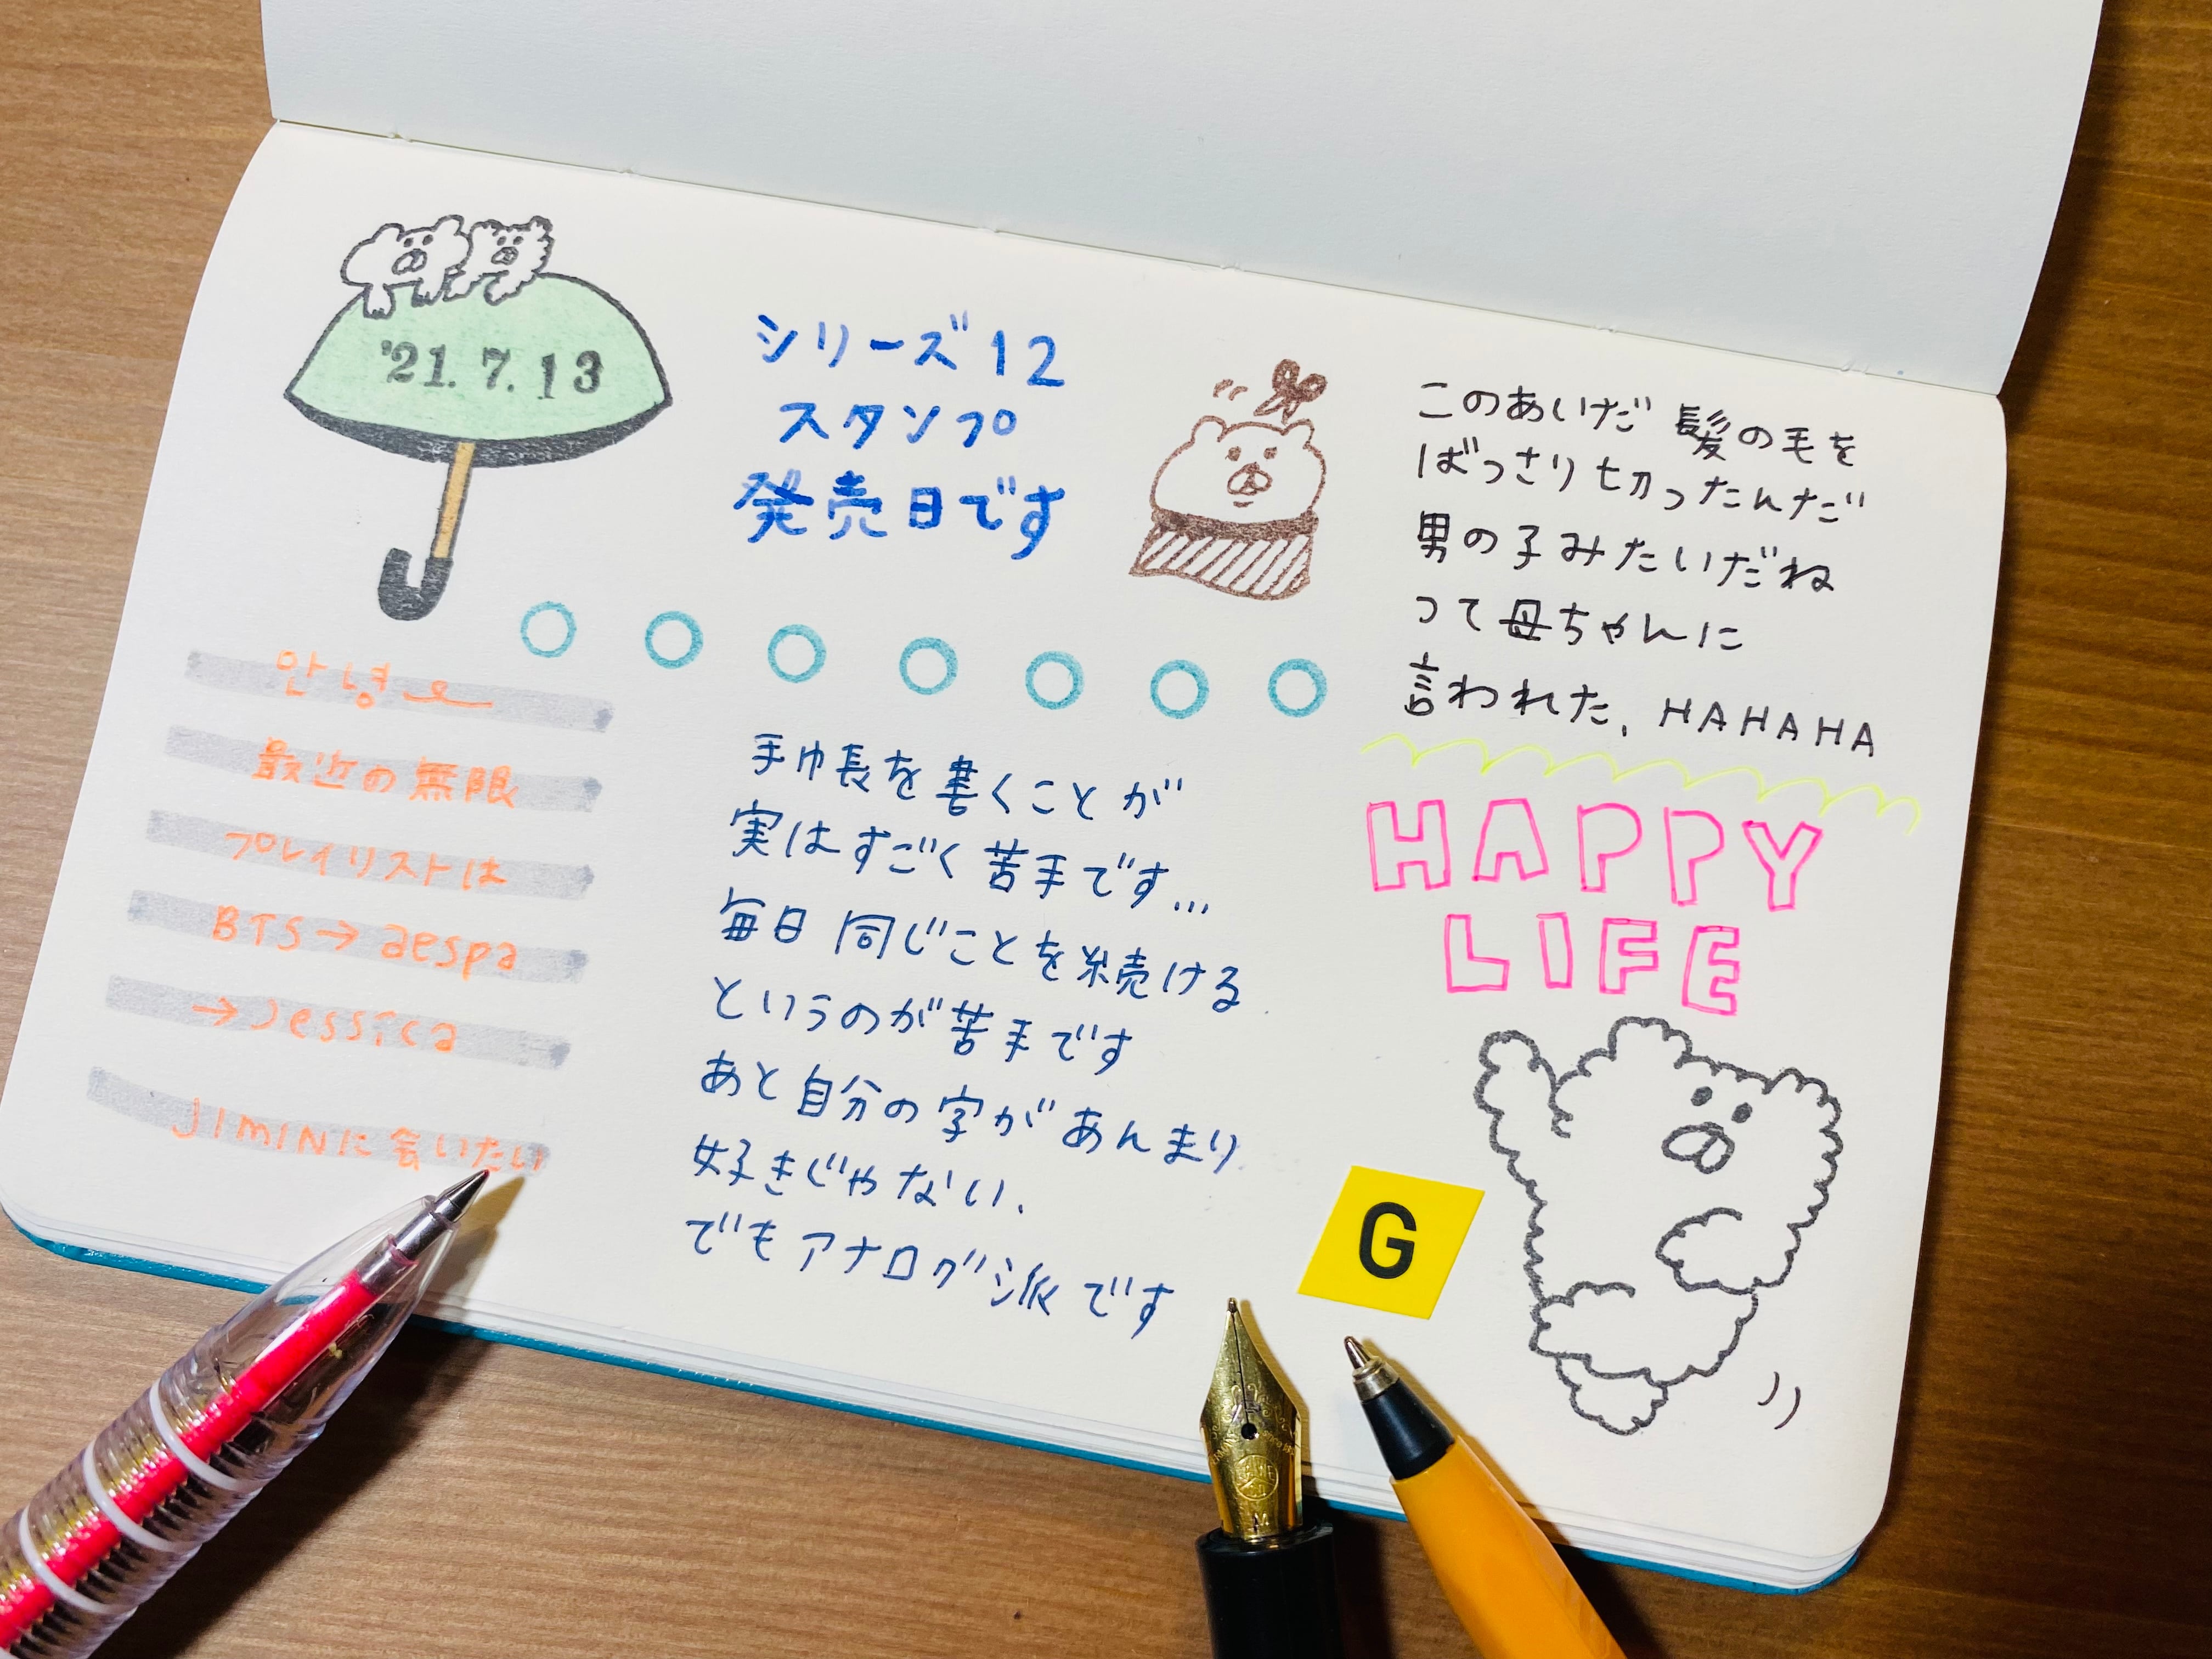 '21.7.13
シリーズ12
スタンプ
発売日です
このあいだ 髪の毛を
ばっさり切ったんだ
男の子みたいだね
って母ちゃんに
言われた. HAHAHA
안녕
最近の無限
プレイリストは
BTS→aespa
→Jessica
JIMINに会いたい
手巾長を書くことが
実はすごく苦手です...
毎日 同じことを続ける
というのが苦手です
あと自分の字があんまり
好きじゃない.
でもアナログ派です
HAPPY
LIFE
G